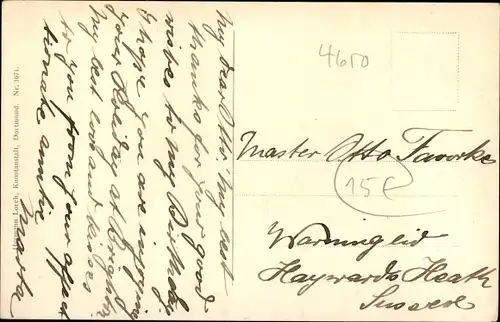 My dear Otto. My best
thanks for your good
wishes to my Birthday
I hope you are enjoying
your Holiday at Brighton
My best love and kisses
to you from your affec
tionate auntie
Martha
Hermann Lorch, Kunstanstalt, Dortmund. Nr. 1671.
4600
Master Otto Favorke
15€
Warninglid
Haywards Heath
Sussex